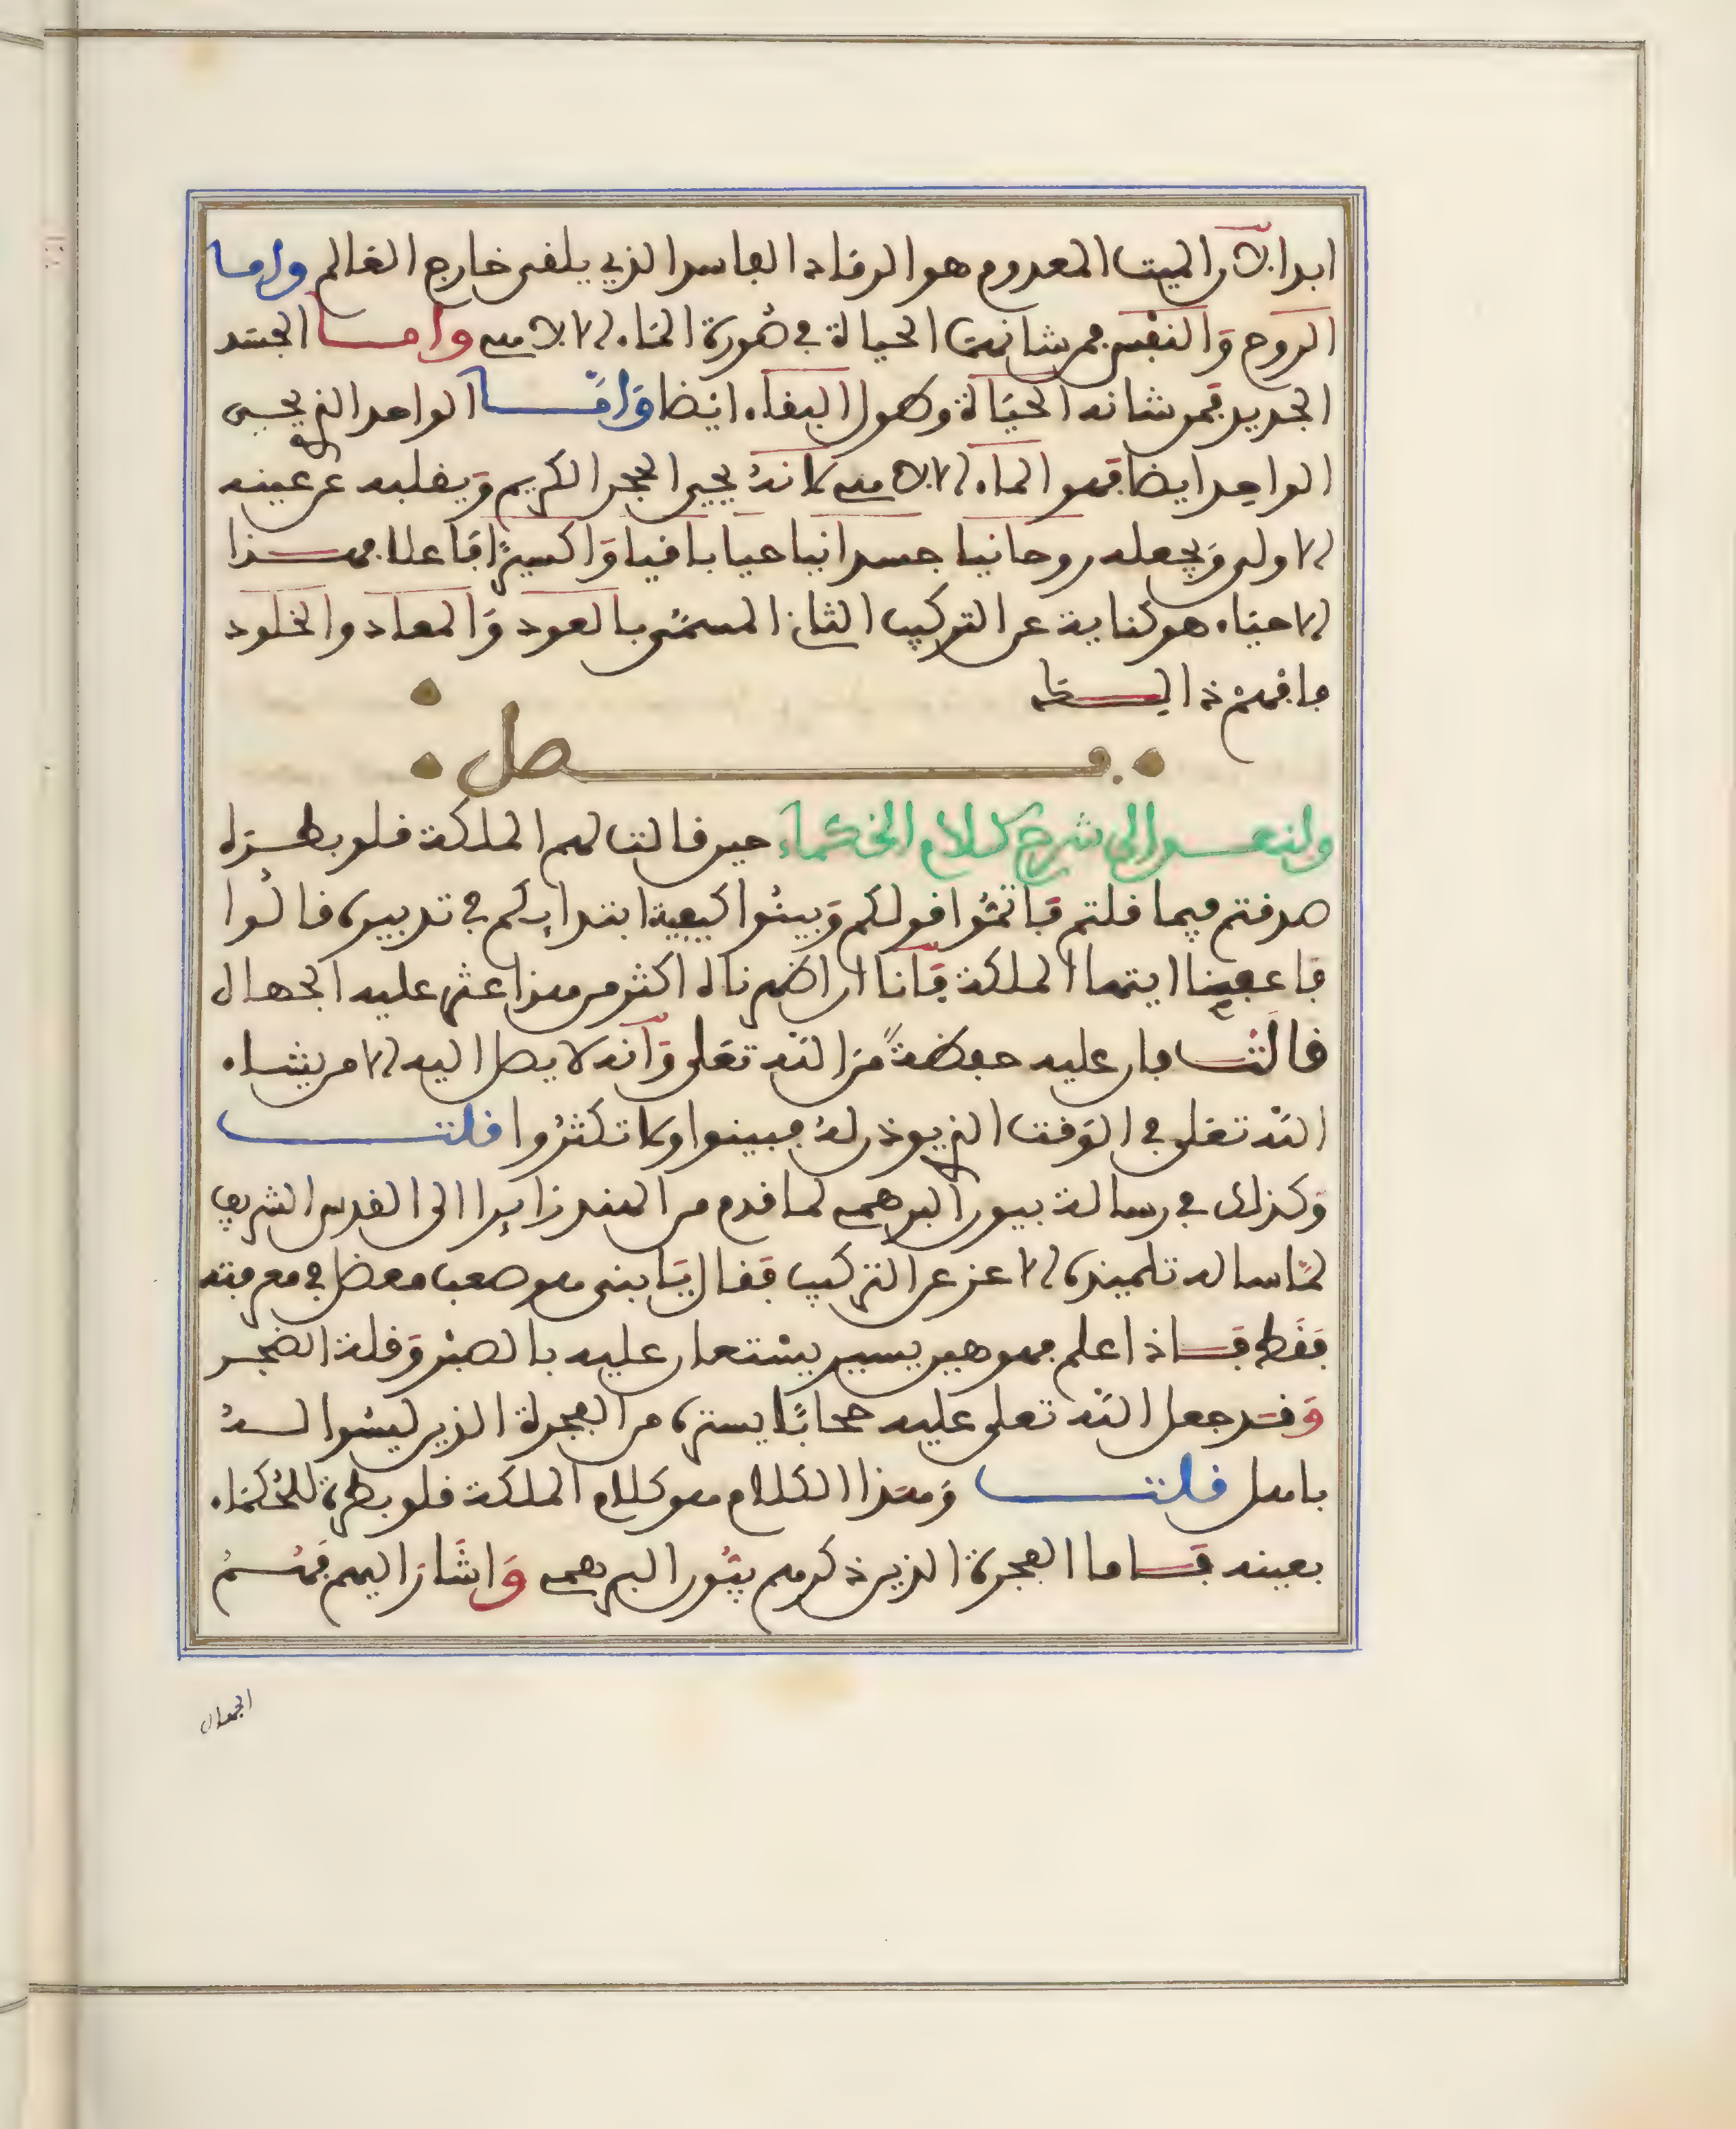 ابدا لان الميت المعدوم هو الرماد الفاسد الذي يلقى خارج العالم واما
الروح والنفس فمن شانهما الحياة في صورة الماء الالاهي واما الجسد
الجديد فمن شانه الحياة وطول البقاء ايضا وامّا الواحد الذي يحيى
الواحد ايضا فهو الماء الالاهي لانه يحيي الحجر الكريم ويقلبه عن عينه
الاولى ويجعله روحانيا جسدانيا حيا باقيا واكسيرًا فاعلا فهذا
الاحياء هو كناية عن التركيب الثاني المسمّى بالعود والمعاد والخلود
فافهم ذالك
فصل
ولنعد الى شرح كلام الحكماء حين قالت لهم الملكة قلوبطرة
صدقتم فيما قلتم فاتمّوا قولكم وبينوا كيفية ابتدايكم في تدبيره قالوا
فاعفينا ايتها الملكة فانا ان اظهرناه اكثر من هذا عثر عليه الجهال
قالت فان عليه حفظةً من الله تعلى وانه لا يصل اليه الا من يشاء
الله تعلى في الوقت الذي يوذن له فبينوا ولا تكثروا قلت
وكذلك في رسالة بيون البرهمي لما قدم من الهند زايرا الى القدس الشريف
لمّا ساله تلميذه الاعز عن التركيب فقال يا بني هو صعب معضل في معرفته
فقط فاذا علم فهو هين يسير يستعان عليه بالصبر وقلة الضجر
وقد جعل الله تعلى عليه حجابًا يستره من الفجرة الذين ليسوا له
باهل قلت وهذا الكلام هو كلام الملكة قلوبطرة للحكماء
بعينه فاما الفجرة الذين ذكرهم بيون البرهمي واشار اليهم فهم
الجهال